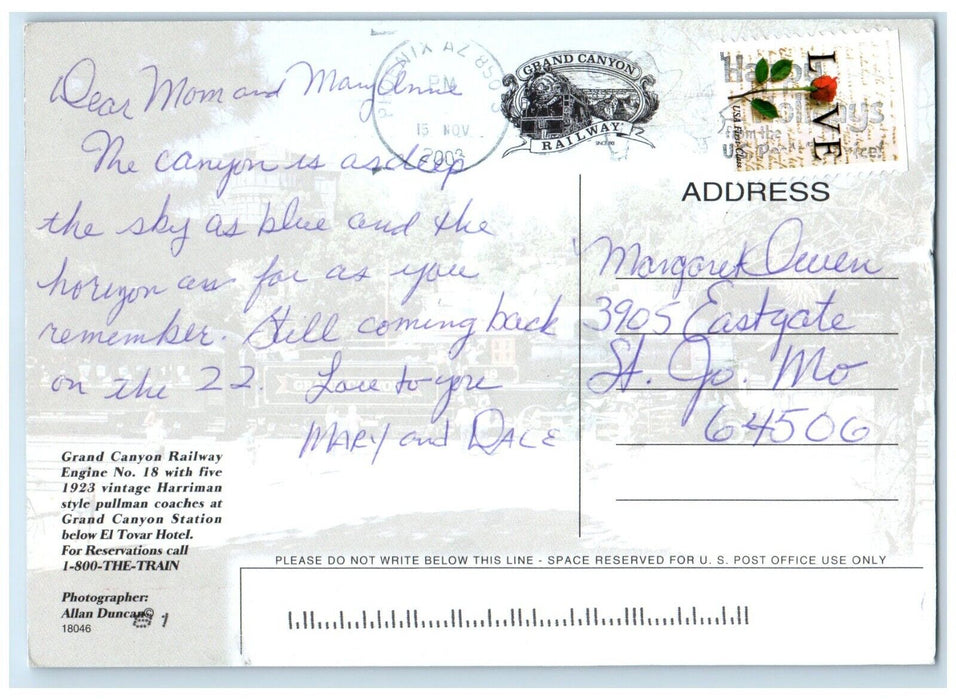 Dear Mom and Mary Anne
The canyon is as deep
the sky as blue and the
horizon as far as you
remember. Still coming back
on the 22. Love to you
MARY and DALE
Grand Canyon Railway
Engine No. 18 with five
1923 vintage Harriman
style pullman coaches at
Grand Canyon Station
below El Tovar Hotel.
For Reservations call
1-800-THE-TRAIN
Photographer:
Allan Duncan©
18046
PHOENIX AZ 850
PM
15 NOV
2003
GRAND CANYON
RAILWAY
Happy
Holidays
from the
U.S. Postal Service!
LOVE
USA First-Class
ADDRESS
Margaret Owen
3905 Eastgate
St. Jo. Mo
64506
PLEASE DO NOT WRITE BELOW THIS LINE - SPACE RESERVED FOR U. S. POST OFFICE USE ONLY